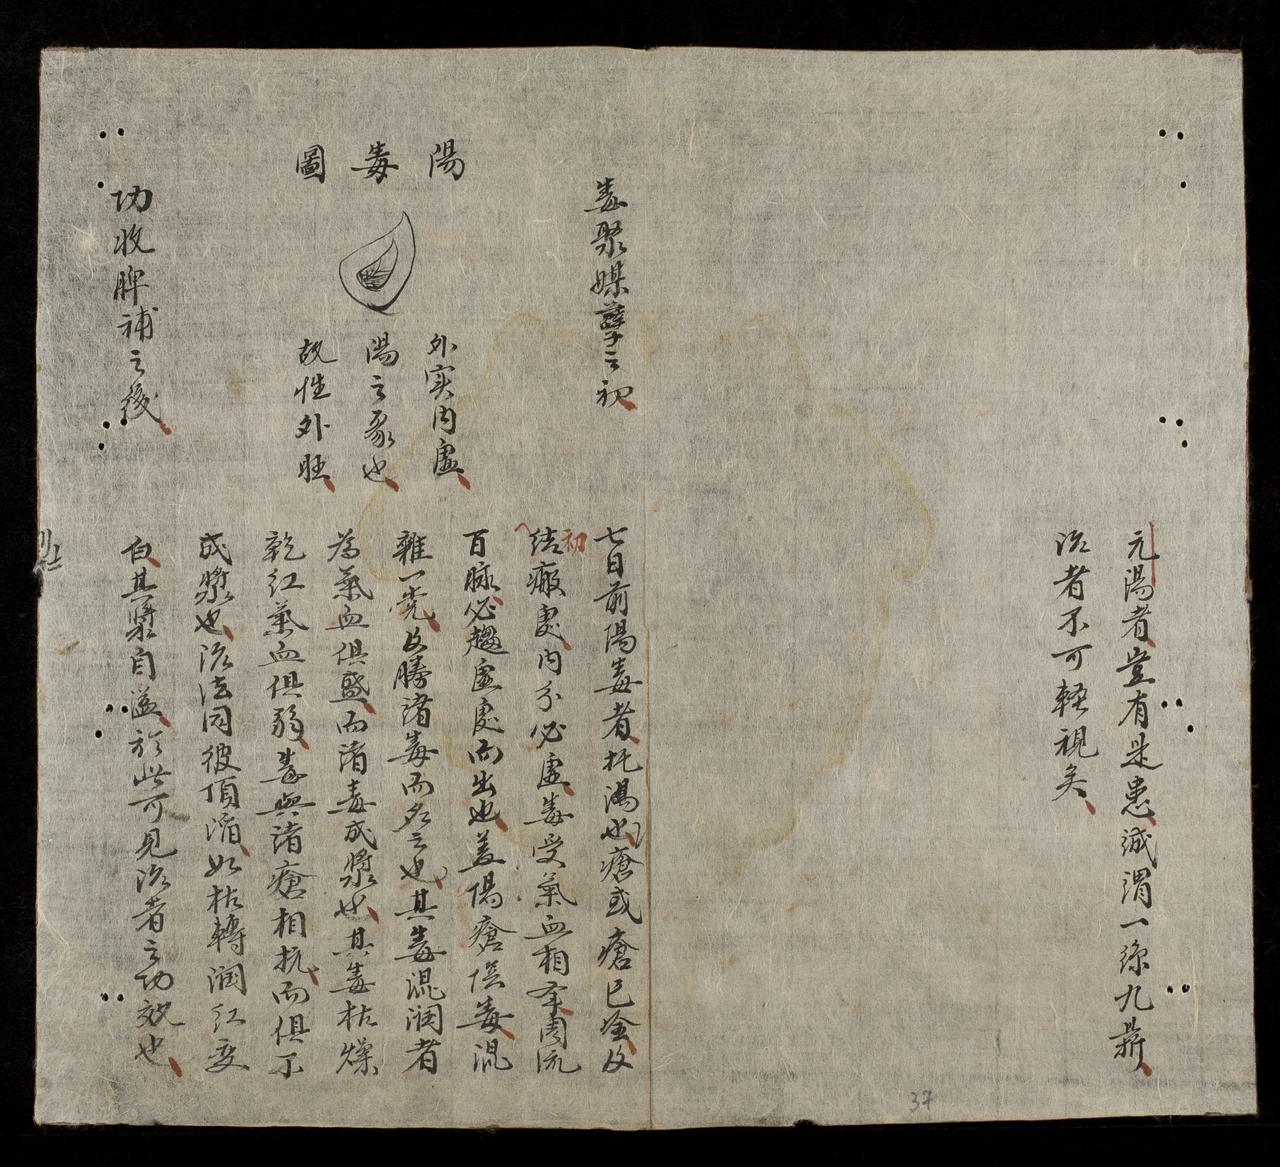 元陽者豈有是患誠渭一綜九鼎
治者不可輕視矣
毒聚媒孽之初
七日前陽毒者托陽也瘡或瘡已發及
初
結癍處內分必虛毒受氣血相奪周流
百脉必趨虛處而出也盖陽瘡俟毒混
雜一党及勝諸毒而名之也其毒混润者
為氣血俱盛而諸毒成漿也其毒枯燥
乾紅氣血俱弱毒與諸瘡相抗而俱不
成漿也治法同彼頂渮如枯轉润紅变
白其漿自溢於此可見治者之功效也
陽毒圖
外实內虛
陽之象也
故性外旺
功收脾補之後
37